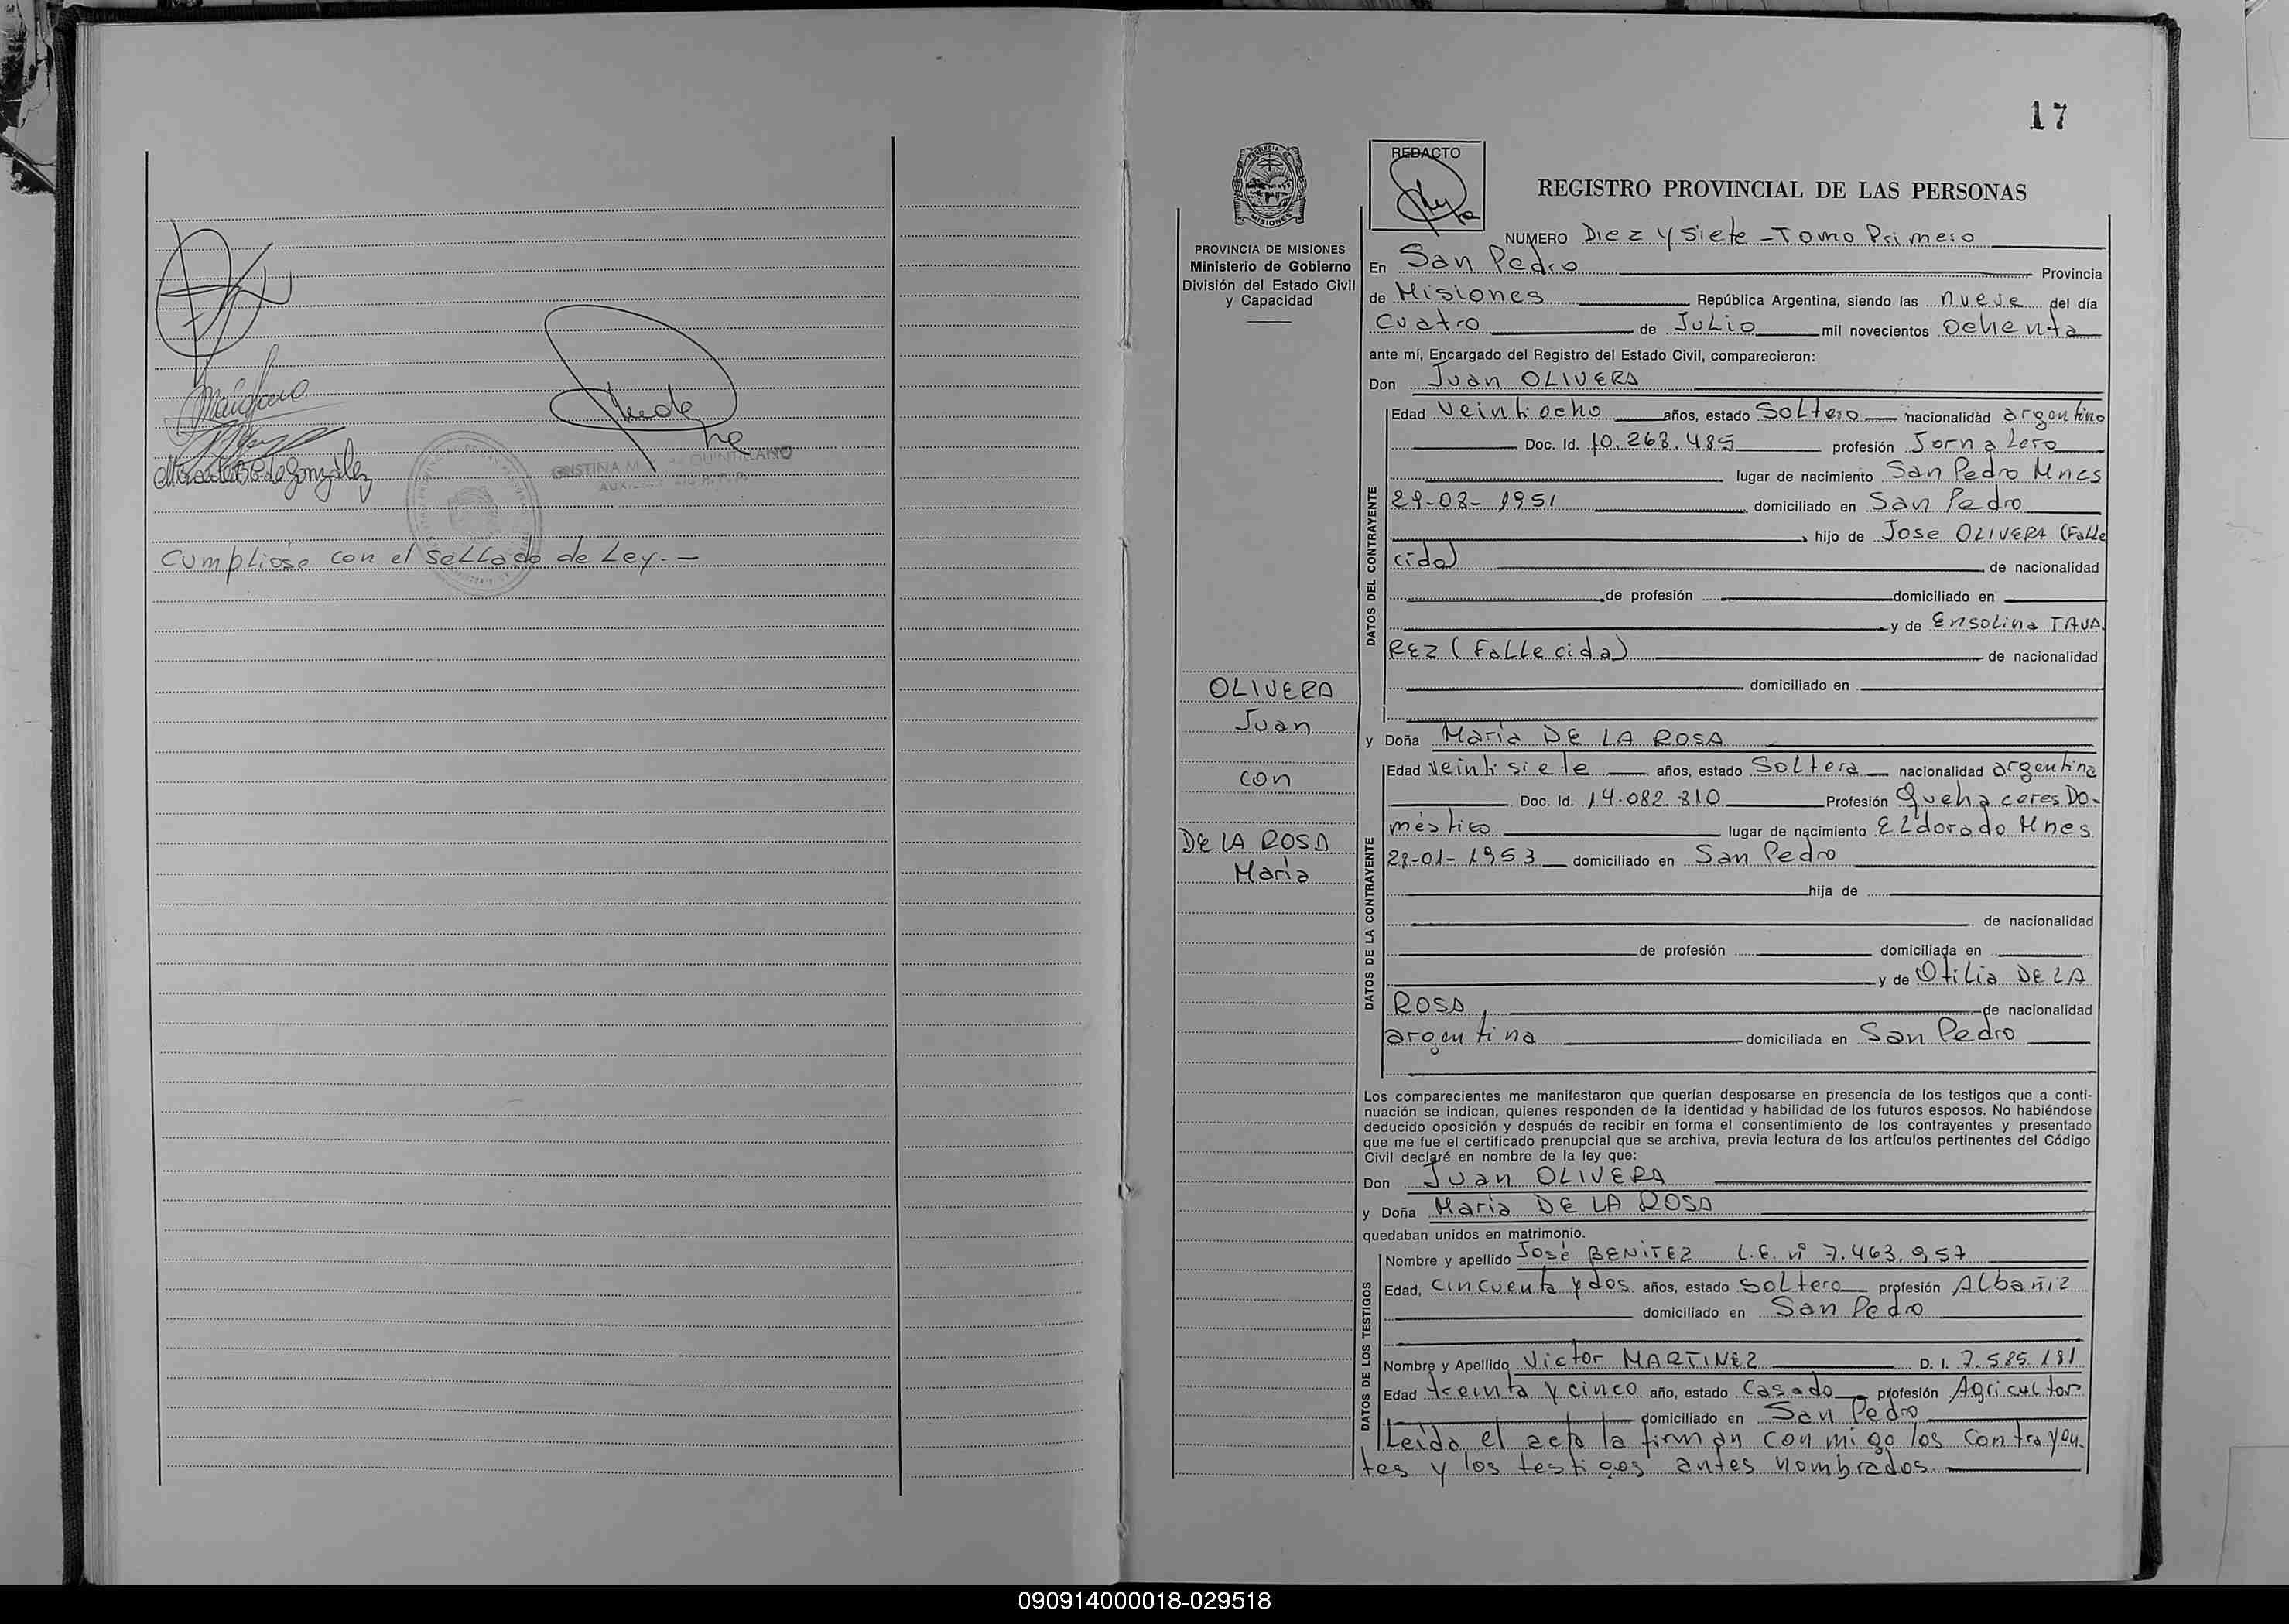 Cumplióse con el sellado de Ley.-
17
REDACTO
REGISTRO PROVINCIAL DE LAS PERSONAS
PROVINCIA DE MISIONES
Ministerio de Gobierno
División del Estado Civil
y Capacidad
OLIVERA
Juan
con
DE LA ROSA
María
NUMERO Diez y Siete - Tomo Primero
En San Pedro Provincia
de Misiones República Argentina, siendo las nueve del día
Cuatro de Julio mil novecientos ochenta
ante mí, Encargado del Registro del Estado Civil, comparecieron:
Don Juan OLIVERA
DATOS DEL CONTRAYENTE
Edad Veintiocho años, estado Soltero nacionalidad argentino
Doc. Id. 10.263.485 profesión Jornalero
lugar de nacimiento San Pedro Mnes
1951 domiciliado en San Pedro
hijo de Jose OLIVERA (Falle
cido) de nacionalidad
de profesión domiciliado en
y de
REZ (Fallecida) de nacionalidad
domiciliado en
y Doña María DE LA ROSA
DATOS DE LA CONTRAYENTE
Edad Veintisiete años, estado Soltera nacionalidad argentina
Doc. Id. 14.082.810 Profesión Quehaceres Do-
méstico lugar de nacimiento Eldorado Mnes
-01-1953 domiciliado en San Pedro
hija de
de nacionalidad
de profesión domiciliada en
y de Otilia DE LA
ROSA, de nacionalidad
argentina domiciliada en San Pedro
Los comparecientes me manifestaron que querían desposarse en presencia de los testigos que a conti-
nuación se indican, quienes responden de la identidad y habilidad de los futuros esposos. No habiéndose
deducido oposición y después de recibir en forma el consentimiento de los contrayentes y presentado
que me fue el certificado prenupcial que se archiva, previa lectura de los artículos pertinentes del Código
Civil declaré en nombre de la ley que:
Don Juan OLIVERA
y Doña María DE LA ROSA
quedaban unidos en matrimonio.
DATOS DE LOS TESTIGOS
Nombre y apellido José BENITEZ L.E. nº 7.463.957
Edad, cincuenta y dos años, estado soltero profesión Albañil
domiciliado en San Pedro
Nombre y Apellido Victor MARTINEZ D. I. 7.585.181
Edad treinta y cinco año, estado Casado profesión Agricultor
domiciliado en San Pedro
Leida el acta la firman conmigo los Contrayen-
tes y los testigos antes nombrados.
090914000018-029518